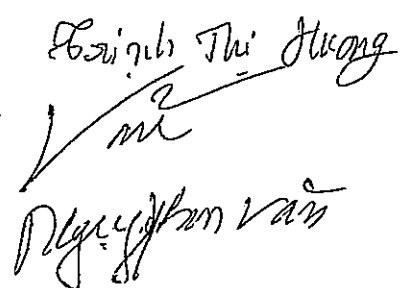 Trịnh Thị Hương
Nguyễn Văn